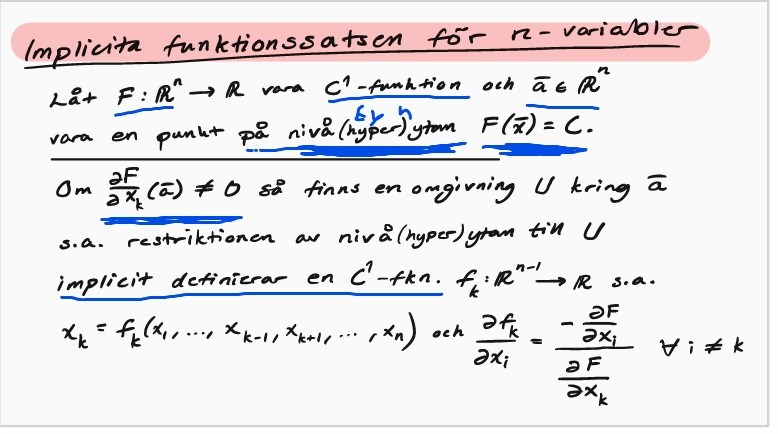 Implicita funktionssatsen för n-variabler
Låt F: ℝⁿ → ℝ vara C¹-funktion och ā ∈ ℝⁿ
vara en punkt på nivå(hyper)ytan F(x̄) = C.
Om ∂F/∂xₖ (ā) ≠ 0 så finns en omgivning U kring ā
s.a. restriktionen av nivå(hyper)ytan till U
implicit definierar en C¹-fkn. fₖ: ℝⁿ⁻¹ → ℝ s.a.
xₖ = fₖ(x₁, ..., xₖ₋₁, xₖ₊₁, ..., xₙ) och ∂fₖ/∂xᵢ = (-∂F/∂xᵢ)/(∂F/∂xₖ) ∀ i ≠ k